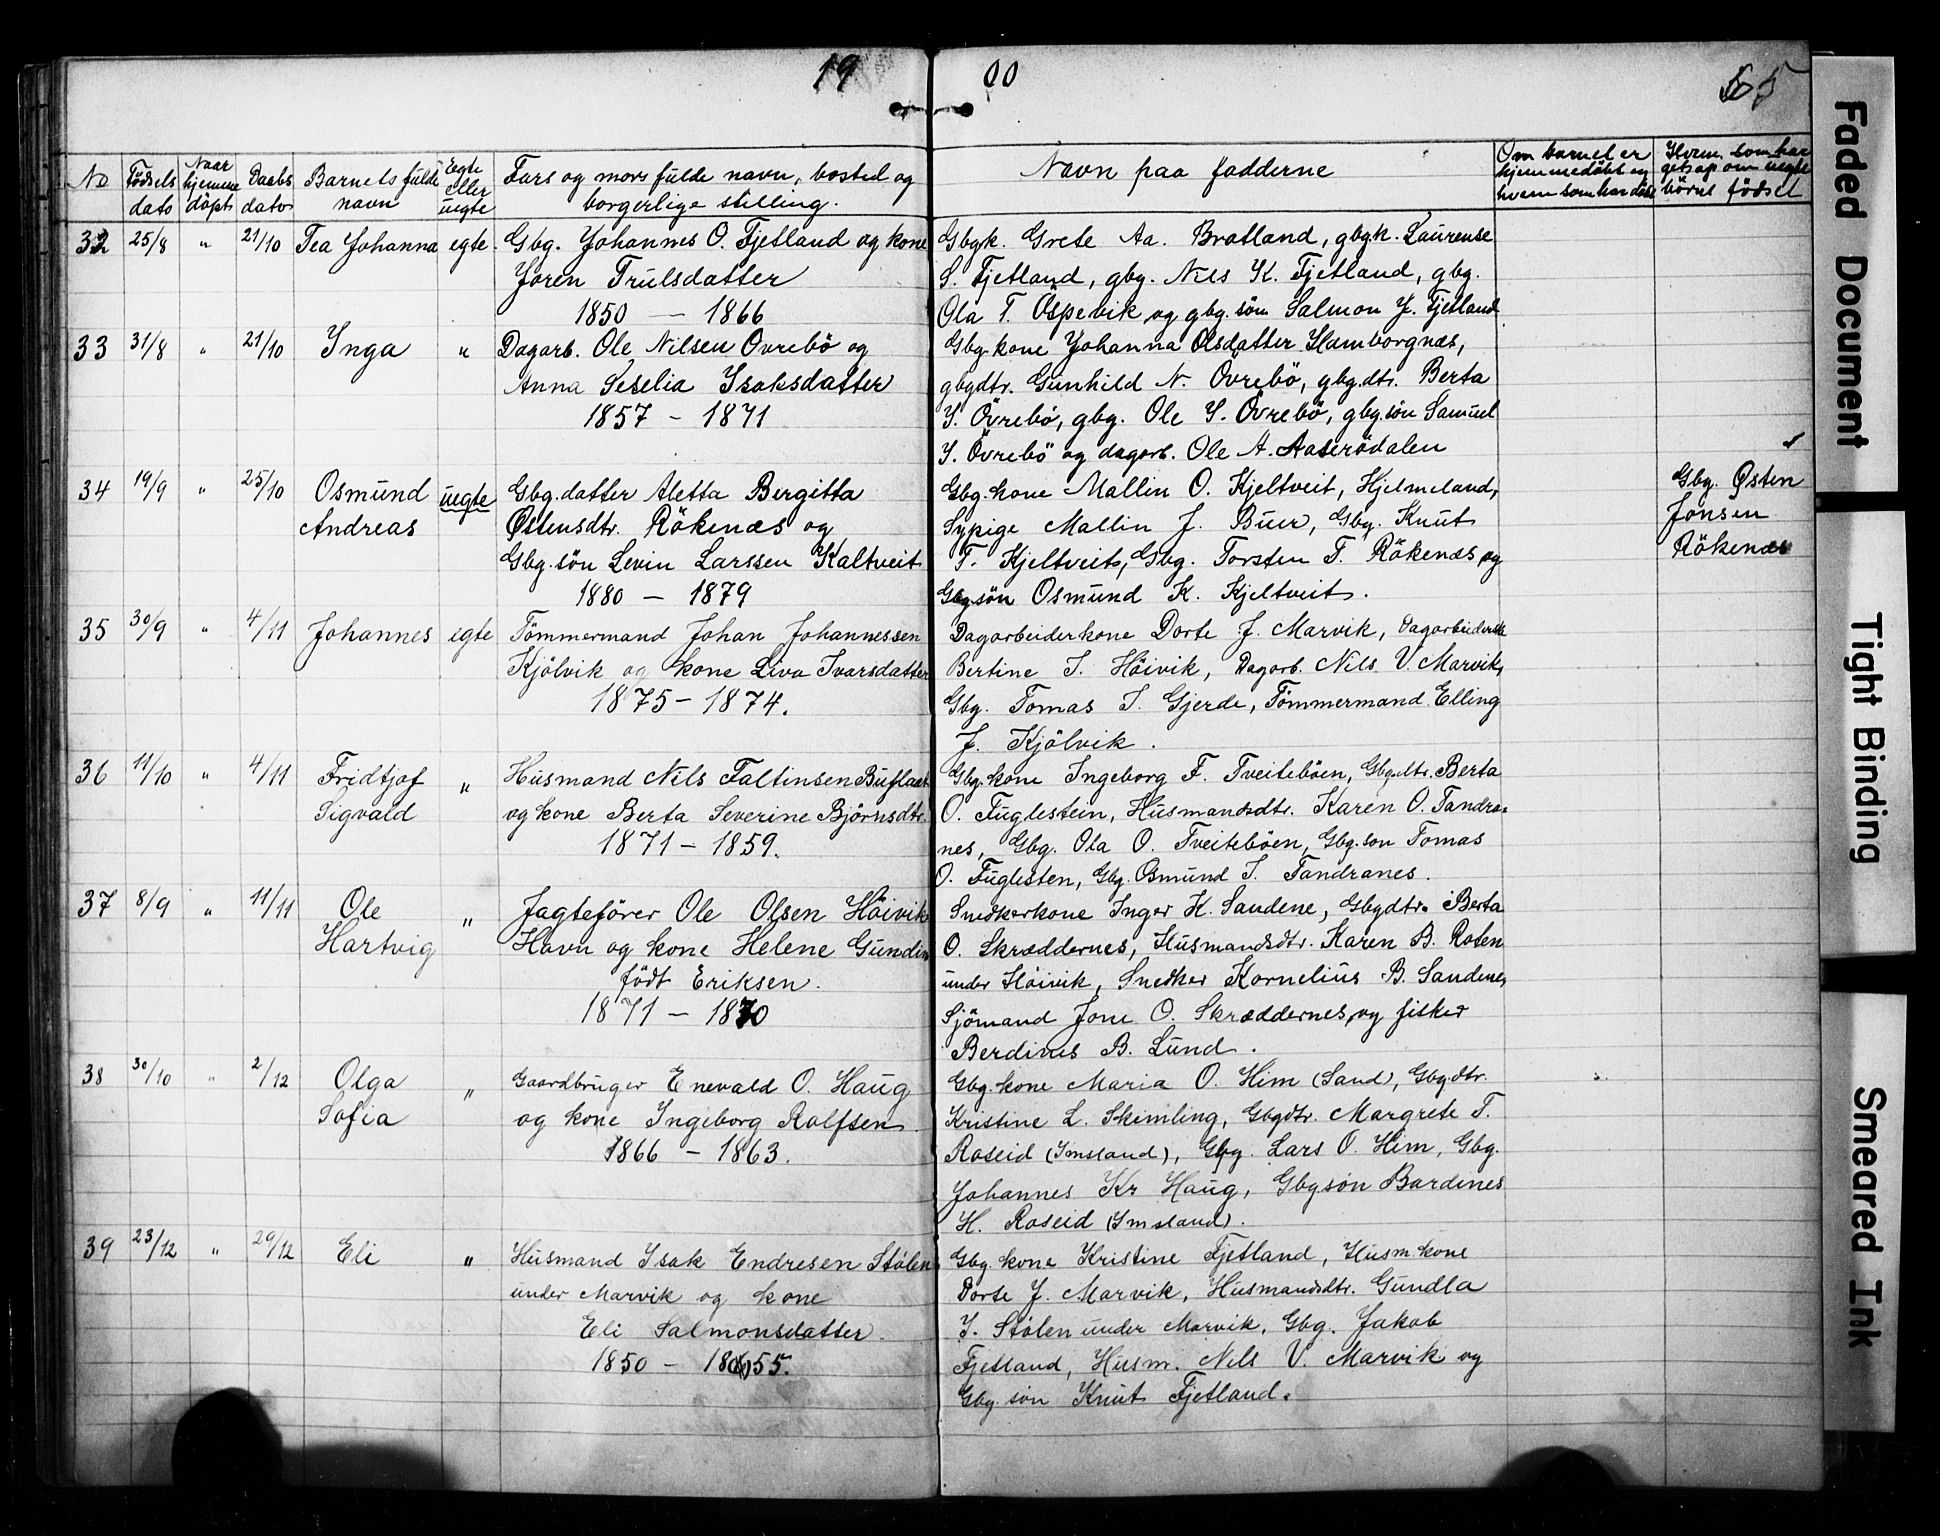 19 00
55
No Fødsels dato Naar hjemme døpt Daabs dato Barnets fulde navn Egte eller uegte Fars og mors fulde navn, bosted og borgerlige stilling. Navn paa fadderne Om barnet er hjemmedöbt og hvem som har døbt Hvem som har
börnet födsel
32 25/8 " 21/10 Tea Johanna egte. Gbg. Johannes O. Fjetland og kone
Joren Trulsdatter
1850 — 1866
Gbgk. Grete Aa. Bratland, gbgk. Laurense
S. Fjetland, gbg. Nils K. Fjetland, gbg.
Ola T. Öspevik og gbg. sön Salmon J. Fjetland
33 31/8 " 21/10 Inga " Dagarb. Ole Nilsen Ovrebö og
Anna Seselia Isaksdatter
1857 - 1871
Gbg. kone Johanna Olsdatter Hamborgnæs,
gbgdtr. Gunhild N. Ovrebö, gbg.dtr. Berta
I. Övrebö, gbg. Ole I. Övrebö, gbg.sön Samuel
I. Övrebö og dagarb. Ole A. Aaserödalen
34 19/9 " 25/10 Osmund
Andreas
uegte Gbg.datter Aletta Bergitta
Østensdtr. Rökenæs og
Gbg.sön Levin Larssen Kaltveit
1880 — 1879
Gbg. kone Mallin O. Kjeltveit, Hjelmeland,
Sypige Mallin J. Buer, Gbg. Knut
T. Kjeltveit, Gbg. Torsten T. Rökenæs og
Gbg.sön Osmund K. Kjeltveit.
Gbg. Østen
Jonsen
Rökenæs
35 30/9 " 4/11 Johannes egte Tömmermand Johan Johannessen
Kjölvik og kone Liva Ivarsdatter
1875 - 1874.
Dagarbeiderkone Dorte J. Marvik, Dagarbeiderk
Bertine I. Höivik, Dagarb. Nils V. Marvik,
Gbg. Tomas I. Gjerde, Tömmermand Elling
J. Kjölvik.
36 11/10 " 4/11 Fridtjof
Sigvald
" Husmand Nils Faltinsen Buflaat
og kone Berta Severine Björnsdtr.
1871 - 1859.
Gbg. kone Ingeborg F. Tveiteböen, Gbg.dtr. Berta
O. Fuglestein, Husmandsdtr. Karen O. Tandra-
nes, Gbg. Ola O. Tveiteböen, Gbg. son Tomas
O. Fuglesten, Gbg. Osmund I. Tandranes.
37 8/9 " 11/11 Ole
Hartvig
" Jagteförer Ole Olsen Höivik
Havn og kone Helene Gundin
födt Eriksen.
1871 - 1870
Snedkerkone Inger K. Sandene, Gbgdtr. Berta
O. Skræddernes, Husmandsdtr. Karen B. Roten
under Höivik, Snedker Kornelius B. Sandenes,
Sjömand Jone O. Skræddernes, og fisker
Berdines B. Lund.
38 30/10 " 2/12 Olga
Sofia
" Gaardbruger Enevald O. Haug
og kone Ingeborg Rolfsen
1866 - 1863.
Gbg. kone Maria O. Him (Sand), Gbg.dtr.
Kristine L. Skimling, Gbgdtr. Margrete T.
Roseid (Imsland), Gbg. Lars O. Him, Gbg.
Johannes Kr Haug, Gbgsön Bardines
H. Roseid (Imsland).
39 23/12 " 29/12 Eli " Husmand Isak Endresen Stölen
under Marvik og kone
Eli Salmonsdatter.
1850 - 1855.
Gbg. kone Kristine Fjetland, Husm. kone
Dorte J. Marvik, Husmandsdtr. Gundla
I. Stölen under Marvik, Gbg. Jakob
Fjetland, Husm. Nils V. Marvik og
Gbg. sön Knut Fjetland.
Faded Document
Tight Binding
Smeared Ink